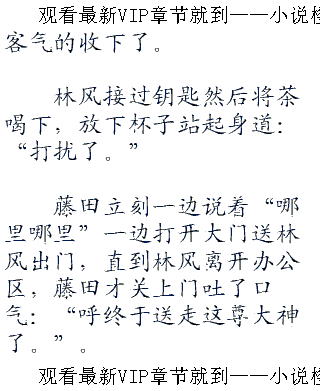 观看最新VIP章节就到——小说
客气的收下了。
林风接过钥匙然后将茶
喝下，放下杯子站起身道：
“打扰了。”
藤田立刻一边说着“哪
里哪里”一边打开大门送林
风出门，直到林风离开办公
区，藤田才关上门吐了口
气：“呼终于送走这尊大神
了。”。
观看最新VIP章节就到——小说